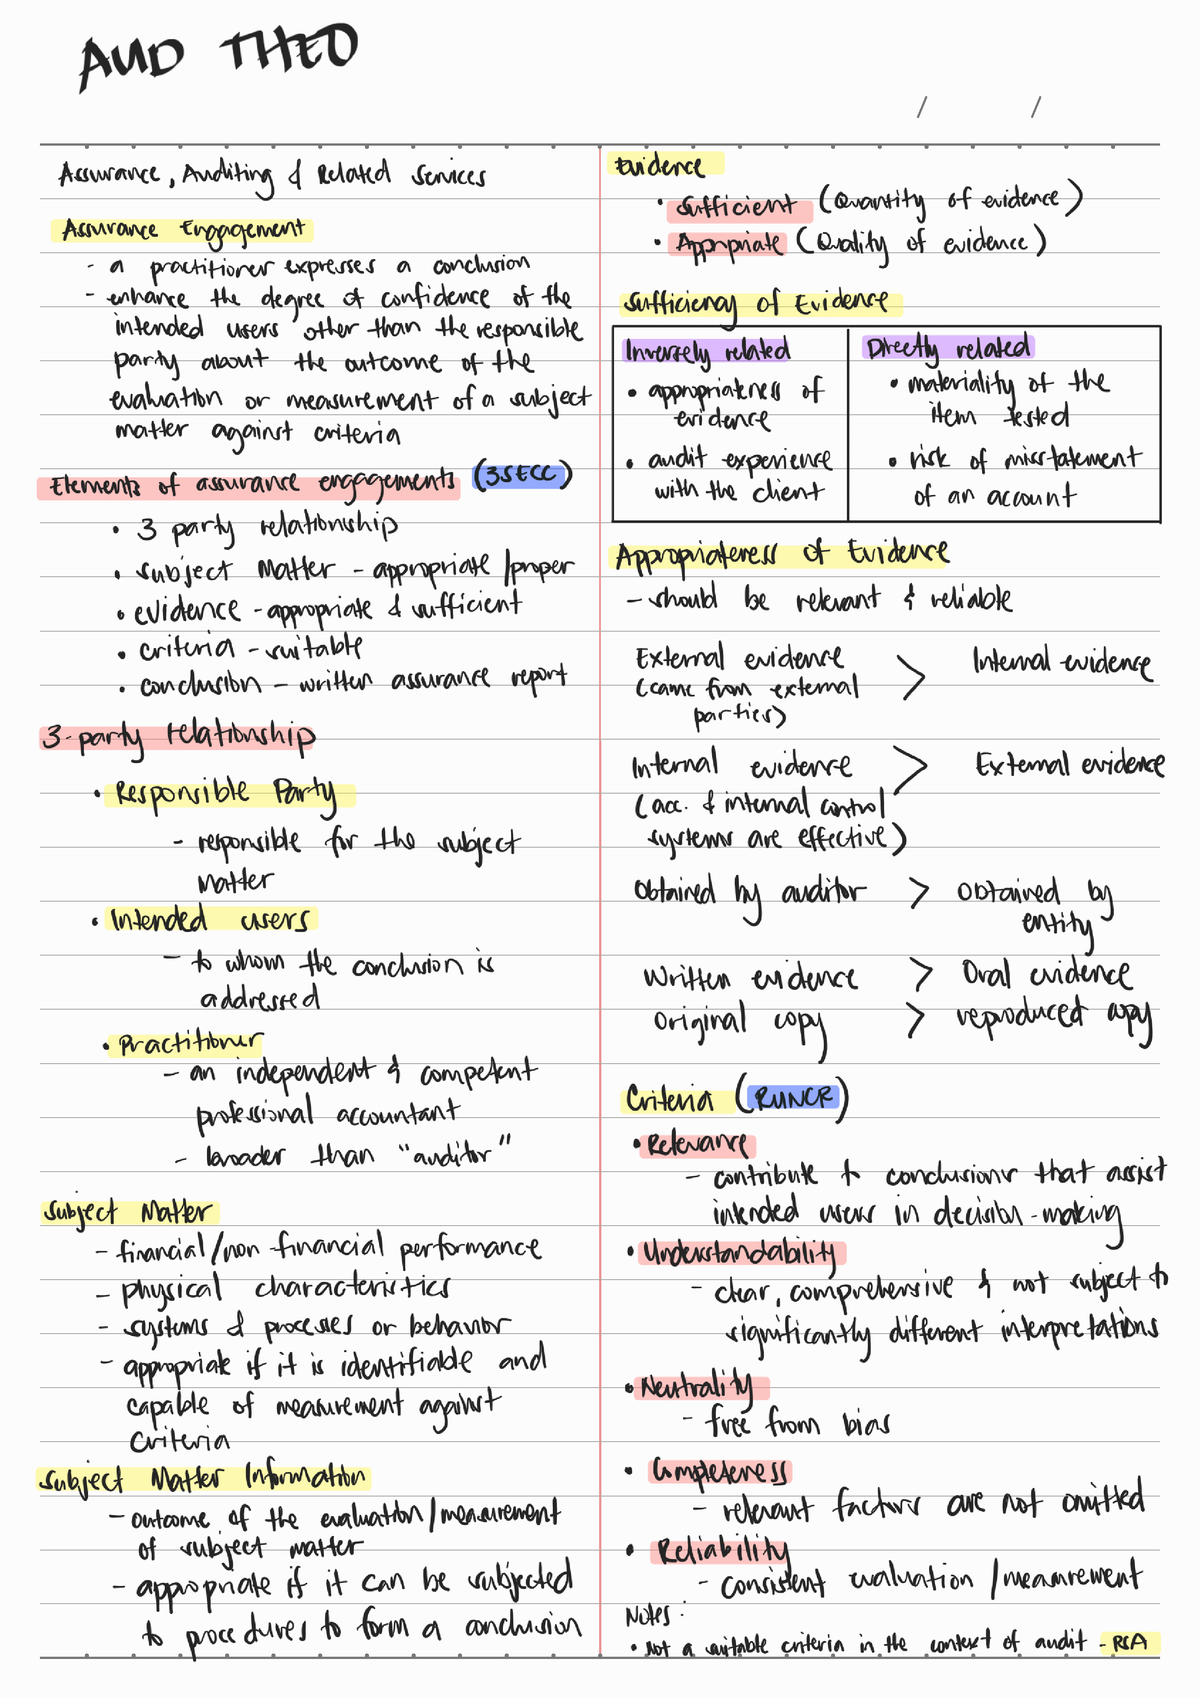 AUD THEO
/ /
Assurance, Auditing & Related Services
Assurance Engagement
- a practitioner expresses a conclusion
- enhance the degree of confidence of the
intended users other than the responsible
party about the outcome of the
evaluation or measurement of a subject
matter against criteria
Elements of assurance engagements (3SECC)
• 3 party relationship
• subject Matter - appropriate/proper
• evidence - appropriate & sufficient
• criteria - suitable
• conclusion - written assurance report
3-party relationship
• Responsible Party
- responsible for the subject
matter
• Intended users
- to whom the conclusion is
addressed
• Practitioner
- an independent & competent
professional accountant
- broader than "auditor"
Subject Matter
- financial/non-financial performance
- physical characteristics
- systems & processes or behavior
- appropriate if it is identifiable and
capable of measurement against
criteria
Subject Matter Information
- outcome of the evaluation/measurement
of subject matter
- appropriate if it can be subjected
to procedures to form a conclusion
Evidence
• Sufficient (Quantity of evidence)
• Appropriate (Quality of evidence)
Sufficiency of Evidence
Inversely related
• appropriateness of
evidence
• audit experience
with the client
Directly related
• materiality of the
item tested
• risk of misstatement
of an account
Appropriateness of Evidence
- should be relevant & reliable
External evidence > Internal evidence
(came from external
parties)
Internal evidence > External evidence
(acc. & internal control
systems are effective)
Obtained by auditor > Obtained by
entity
Written evidence > Oral evidence
Original copy > reproduced copy
Criteria (RUNCR)
• Relevance
- contribute to conclusions that assist
intended users in decision-making
• Understandability
- clear, comprehensive & not subject to
significantly different interpretations
• Neutrality
- free from bias
• Completeness
- relevant factors are not omitted
• Reliability
- consistent evaluation/measurement
Notes:
• not a suitable criteria in the context of audit - RSA